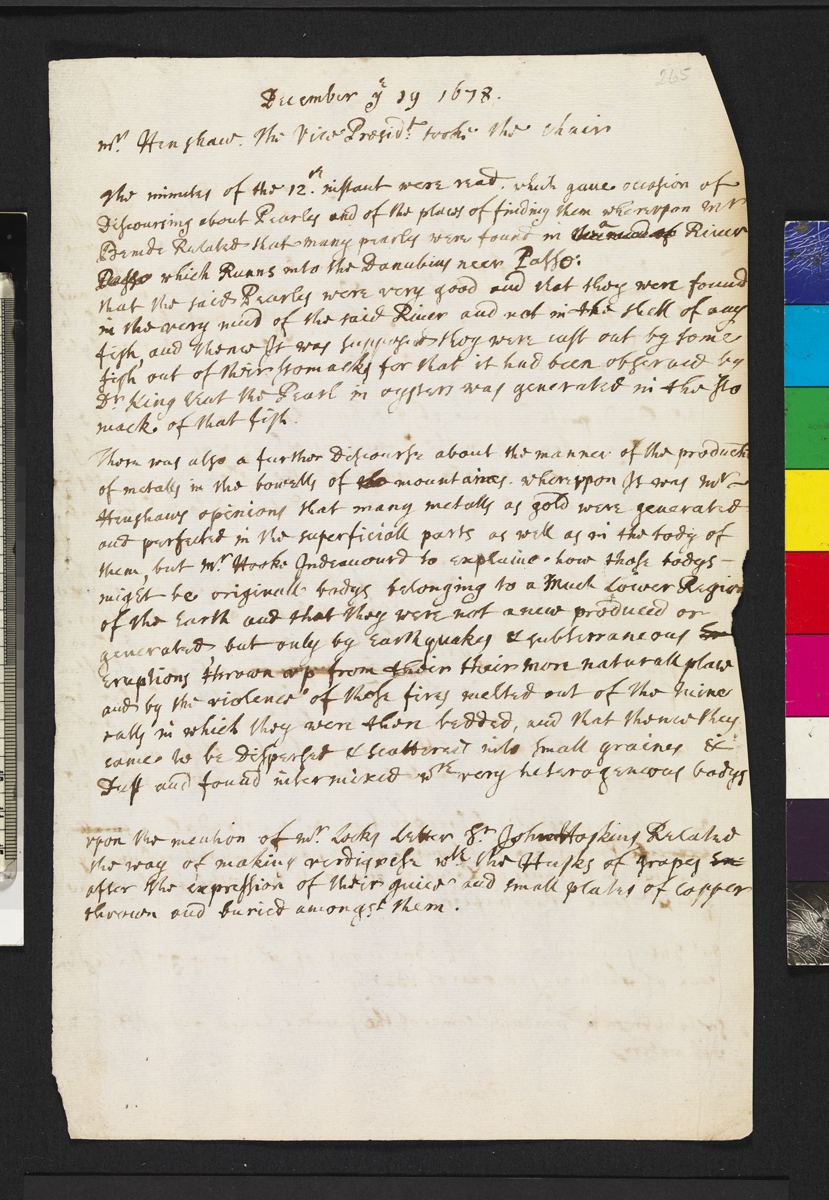 265
December ye 19 1678.
mr. Henshaw. The Vice Presidt. tooke the chair
The minutes of the 12.th instant were read. which gaue occasion of
Discoursing about Pearles and of the places of finding them wherevpon mr
Related that many pearles were found in a River
which Runns into the Danubius neer Passo.
that the said Pearles were very good and that they were found
in the very mud of the said River and not in the shell of any
fish, and thence It was supposed they were cast out by some
fish out of their stomacks for that it had been obserued by
Dr King that the Pearl in oysters was generated in the sto
mack of that fish.
There was also a further Discourse about the manner of the product
of metalls in the bowells of the mountaines. wherevpon It was mr
Henshaws opinions that many metalls as gold were generated
and perfected in the superficiall parts as well as in the body of
them, but mr Hooke Indeauourd to explaine how those bodys
might be originall bodys belonging to a Much Lower Region
of the Earth and that they were not anew produced or
generated but only by Earthquakes & subterraneous
eruptions thrown vp from their their more naturall place
and by the violence of those fires melted out of the mine
ralls in which they were there bedded, and that thence they
came to be dispersed & scattered into small graines &
Dust and found intermixed wth very heterogeneous bodys
vpon the mention of mr. Locks Letter Sr John Hoskins Related
the way of making verdigrese wth the Husks of grapes
after the expression of their guice and small plates of Copper
thrown and buried amongst them.